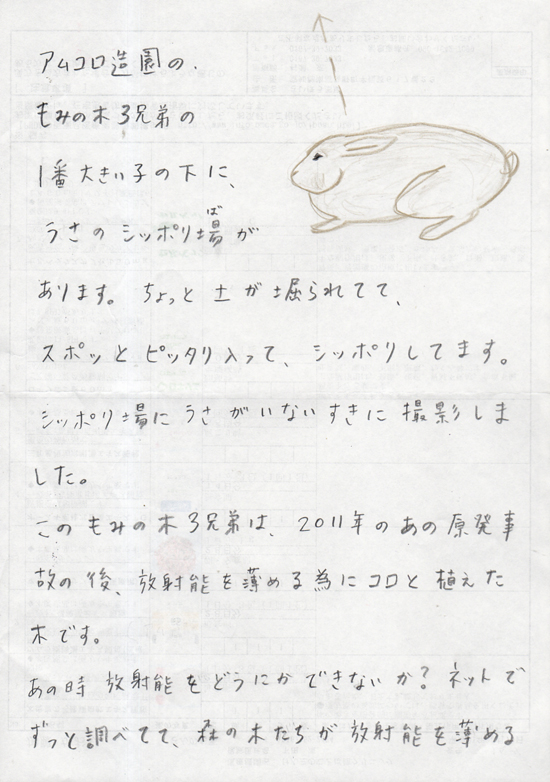 アムコロ造園の、
もみの木3兄弟の
1番大きい子の下に、
うさのシッポリ場が
ば
あります。ちょっと土が堀られてて、
スポッとピッタリ入って、シッポリしてます。
シッポリ場にうさがいないすきに撮影しま
した。
このもみの木3兄弟は、2011年のあの原発事
故の後、放射能を薄める為にコロと植えた
木です。
あの時放射能をどうにかできないか？ネットで
ずっと調べてて、森の木たちが放射能を薄める